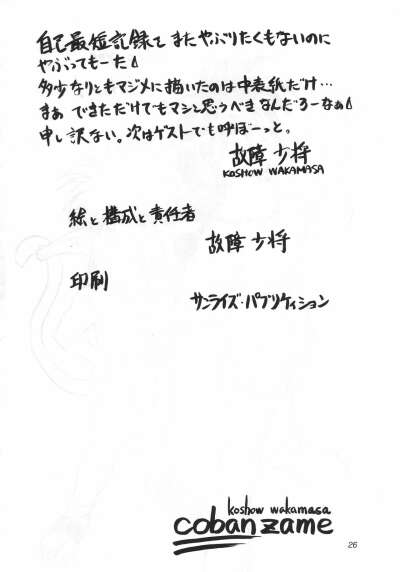 自己最短記録を またやぶりたくもないのに
やぶってもーた。
多少なりともマジメに描いたのは中表紙だけ…
まぁ できただけでもマシと思うべきなんだろーなぁ。
申し訳ない。次はゲストでも呼ぼーっと。
故障少将
KOSHOW WAKAMASA
絵と構成と責任者
故障少将
印刷
サンライズ・パブリケイション
koshow wakamasa
cobanzame
26